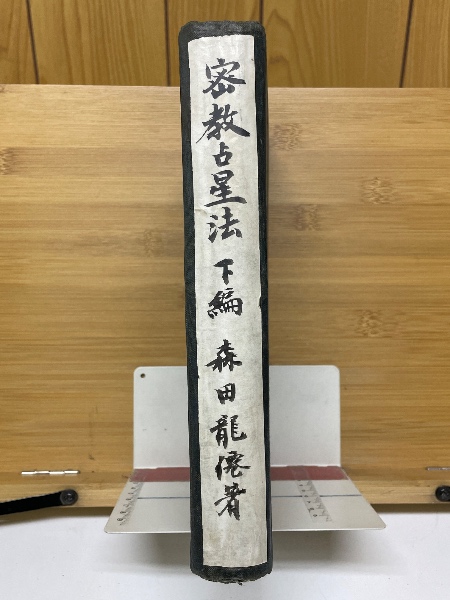 密教占星法 下編 森田龍僊著